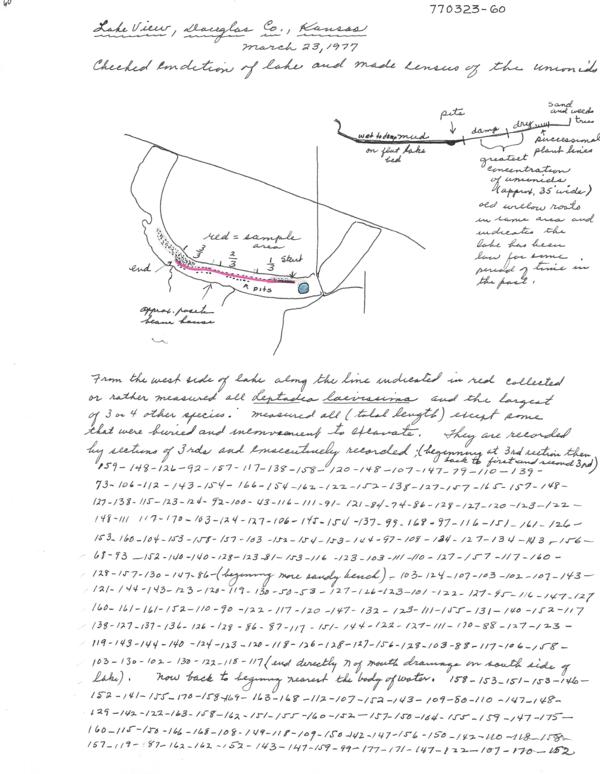 770323-60
60
Lake View, Douglas Co., Kansas
March 23, 1977
Checked condition of lake and made census of the unionids
pits
sand
and weeds
trees
wet to damp mud
damp
dry
on flat lake
bed
successional
plant lines
greatest
concentration
of unionids
(approx. 35' wide)
old willow roots
in same area and
indicates the
lake has been
low for some
period of time in
the past.
red = sample
area
3/3
2/3
1/3
Start
end
pits
approx. posit.
house
From the west side of lake along the line indicated in red collected
or rather measured all Leptodea laevissima and the largest
of 3 or 4 other species. measured all (total length) except some
that were buried and inconvenient to excavate. They are recorded
by sections of 3rds and consecutively recorded; (beginning at 3rd section then
back to first and second 3rd)
159-148-126-92-157-117-138-158-120-148-107-147-79-110-139-
73-106-112-143-154-166-154-162-122-152-138-127-157-165-157-148-
127-138-115-123-124-92-100-43-116-111-91-121-84-74-86-128-127-120-123-122-
148-111 117-170-103-124-127-106-145-154-137-99-168-97-116-151-161-126-
153-160-104-153-158-157-103-152-154-153-144-97-108-124-127-134-143-156-
68-93-152-140-140-128-123-81-153-116-123-103-111-110-127-157-117-160-
128-157-130-147-86-(beginning more sandy beach)-103-124-107-103-102-107-143-
121-144-143-123-120-119-130-50-53-127-126-123-101-122-127-95-116-147-127
160-161-161-152-110-90-122-117-120-147-132-123-111-155-131-140-152-117
138-127-137-136-126-128-86-87-117-151-144-122-127-111-170-88-127-123-
119-143-144-140-124-123-120-118-126-128-127-156-128-103-88-117-106-158-
103-130-102-130-122-115-117 (end directly N of mouth drainage on south side of
lake). Now back to beginning nearest the body of water. 158-153-151-153-146-
152-141-155-170-158-169-163-168-112-107-152-143-109-80-110-147-148-
129-142-122-163-158-162-151-155-160-152-157-150-164-155-159-147-175-
160-115-150-166-168-108-149-118-109-150-142-147-156-150-142-110-118-158-
157-119-87-162-162-152-143-147-159-99-177-171-147-122-107-170-152